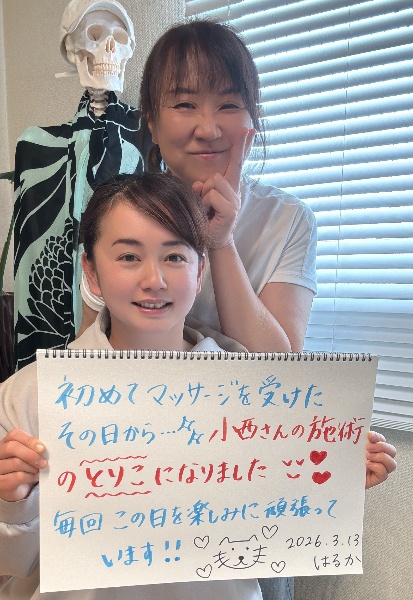 初めてマッサージを受けた
その日から…小西さんの施術
のとりこになりました
毎回この日を楽しみに頑張って
います!!
2026.3.13
はるか